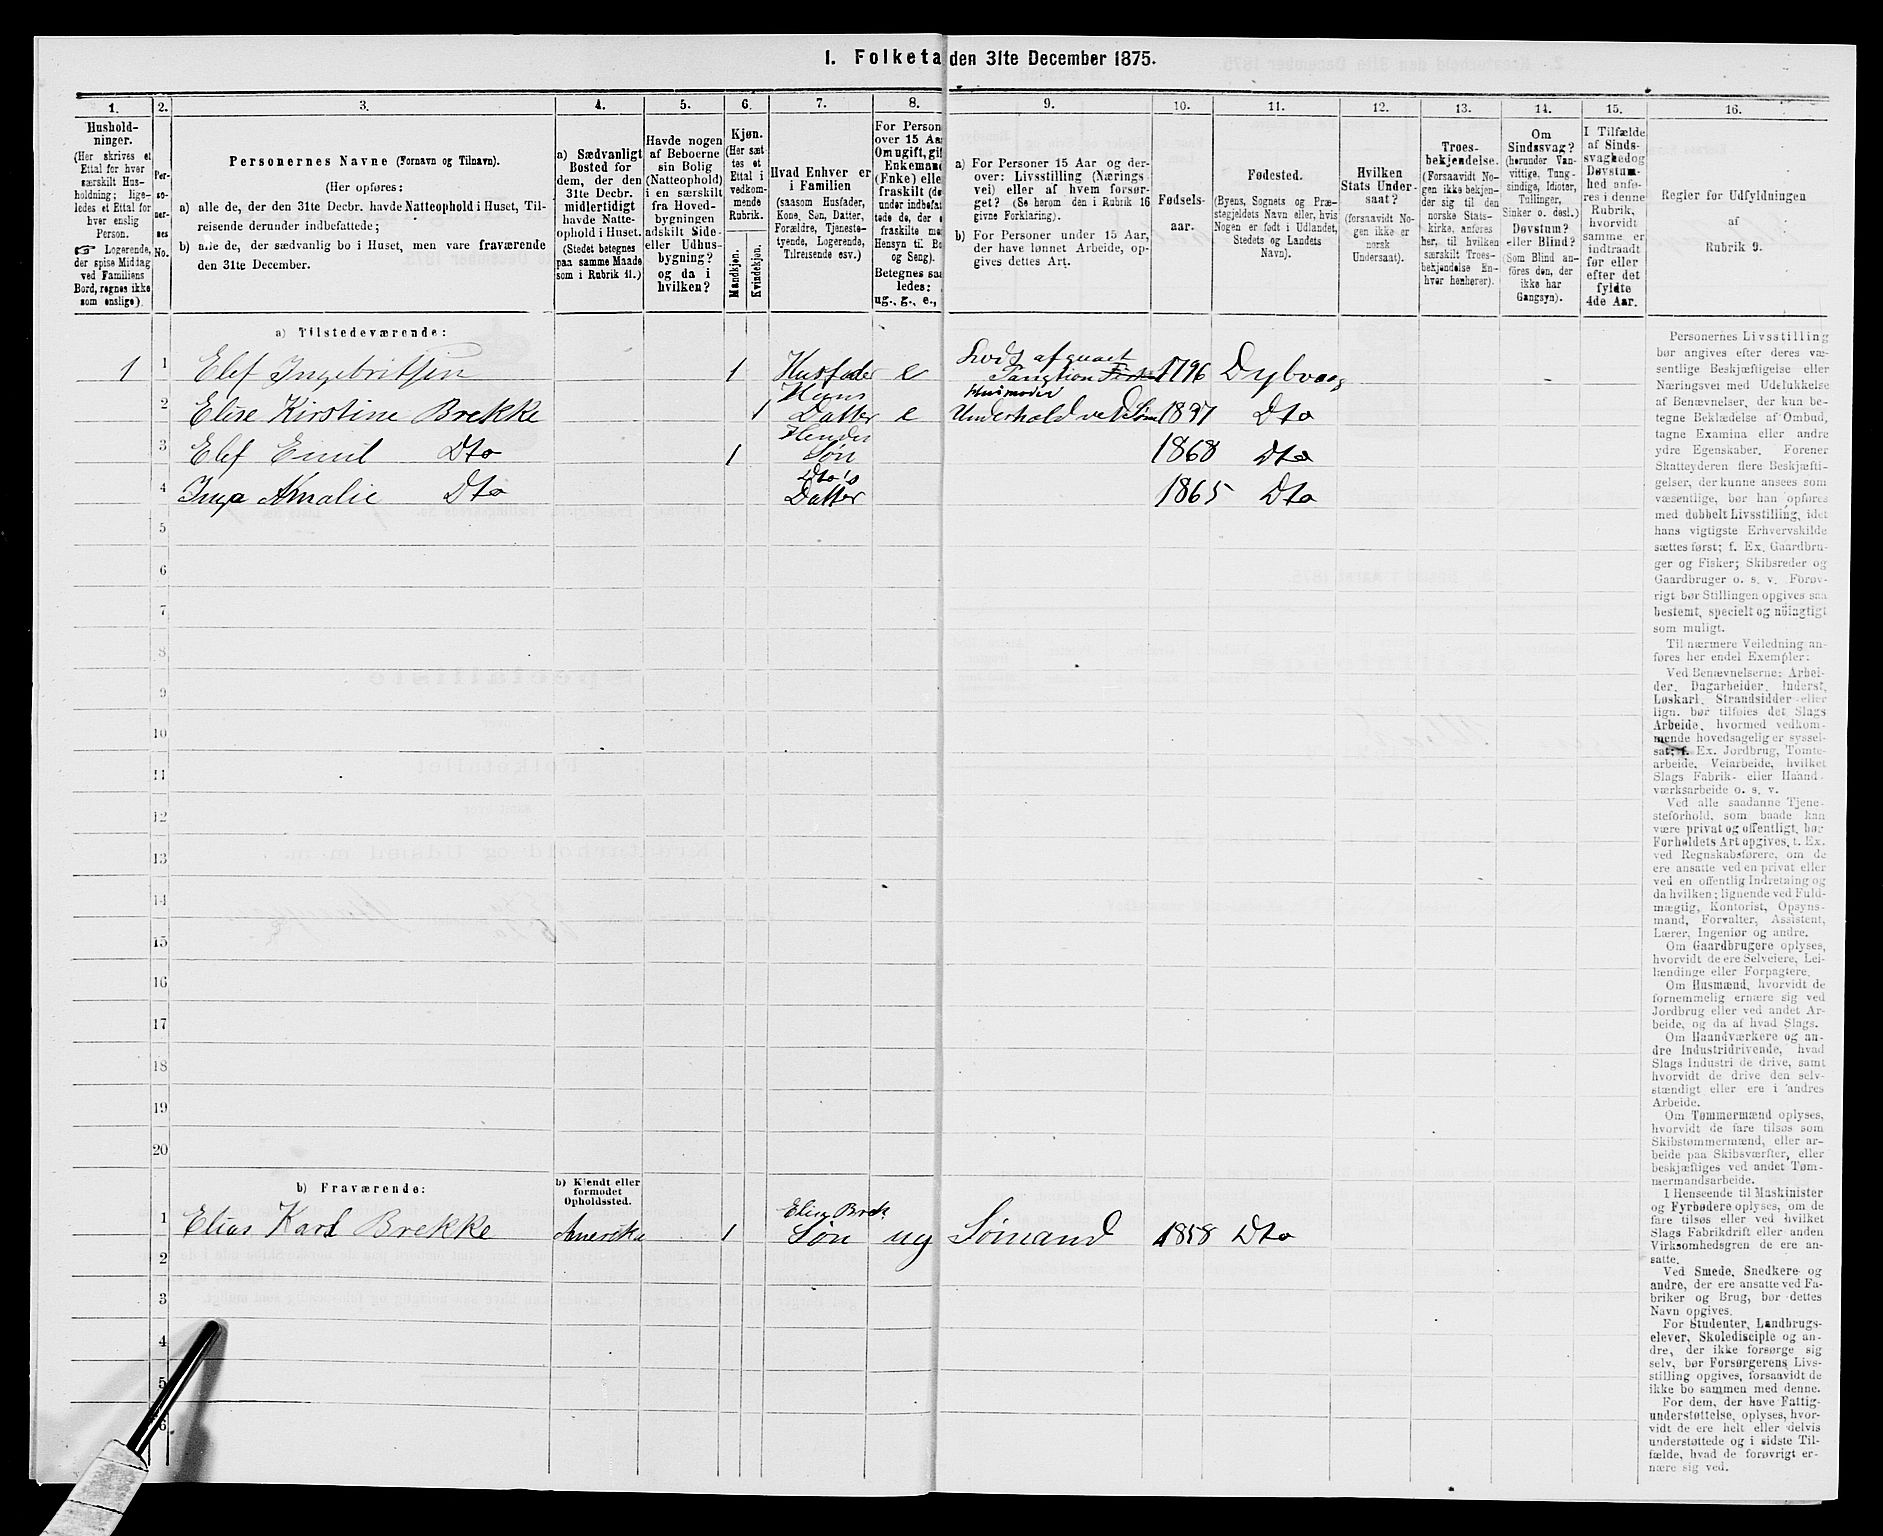 I. Folketa den 31te December 1875.
1.
Hushold-
ninger.
(Her skrives et
Ettal for hver
særskilt Hus-
holdning; lige-
ledes et Ettal for
hver enslig
Person.
Logerende,
der spise Middag
ved Familiens
Bord, regnes ikke
som enslige).
2.
Per-
so-
ner-
nes
No.
3.
Personernes Navne (Fornavn og Tilnavn).
(Her opføres:
a) alle de, der den 31te Decbr. havde Natteophold i Huset, Til-
reisende derunder indbefattede;
b) alle de, der sædvanlig bo i Huset, men vare fraværende
den 31te December.
4.
a) Sædvanligt
Bosted for
dem, der den
31te Decbr.
midlertidigt
havde Natte-
ophold i Huset.
(Stedet betegnes
paa samme Maade
som i Rubrik 11.)
5.
Havde nogen
af Beboerne
sin Bolig
(Natteophold)
i en særskilt
fra Hoved-
bygningen
adskilt Side-
eller Udhus-
bygning?
og da i
hvilken?
6.
Kjøn.
(Her sæt-
tes et
Ettal i
vedkom-
mende
Rubrik.
Mandkjøn.
Kvindekjøn.
7.
Hvad Enhver er
i Familien
(saasom Husfader,
Kone, Søn, Datter,
Forældre, Tjeneste-
tyende, Logerende,
Tilreisende osv.)
8.
For Person
over 15 Aa
Om ugift, gif
Enkemand
(Enke) elle
fraskilt (de
under indbefat
tede de, der e
fraskilte m
Hensyn til Bo
og Seng).
Betegnes saa
ledes:
ug., g., e.,
9.
a) For Personer 15 Aar og der-
over: Livsstilling (Nærings
vei) eller af hvem forsør-
get? (Se herom den i Rubrik 16
givne Forklaring).
b) For Personer under 15 Aar,
der have lønnet Arbeide, op-
gives dettes Art.
10.
Fødsels-
aar.
11.
Fødested.
(Byens, Sognets og Præ-
stegjeldets Navn eller, hvis
Nogen er født i Udlandet,
Stedets og Landets
Navn).
12.
Hvilken
Stats Under-
saat?
(forsaavidt No-
gen ikke er
norsk
Undersaat).
13.
Troes-
bekjendelse.
(Forsaavidt No-
gen ikke bekjen-
der sig til den
norske Stats-
kirke, anføres
her, til hvilken
særskilt Troes-
bekjendelse En-
hver henhører).
14.
Om
Sindssvag?
(herunder Van-
vittige, Tung-
sindige, Idioter,
Tullinger,
Sinker o. desl.)
Døvstum?
eller Blind?
(Som Blind an-
føres den, der
ikke har
Gangsyn).
15.
I Tilfælde
af Sinds-
svaghed og
Døvstum-
hed anfø-
res i denne
Rubrik,
hvorvidt
samme er
indtraadt
før eller
efter det
fyldte
4de Aar.
16.
Regler for Udfyldningen
af
Rubrik 9.
a) Tilstedeværende:
1 1 Elef Ingebritsen 1 Husfader e Lods afgaaet Pangtion 1796 Dybvaag
2 Elise Kirstine Brekke 1 Hans Datter e Husmoder Underhold ved Søn 1837 Dto
3 Elef Emil Dto 1 Hendes Søn 1868 Dto
4 Inga Amalie Dto Dto's Datter 1865 Dto
5
6
7
8
9
10
11
12
13
14
15
16
17
18
19
20
b) Fraværende:
b) Kjendt eller
formodet
Opholdssted.
1 Elias Karl Brekke Amerika 1 Elise Brek. Søn ug Sømand 1858 Dto
2
3
4
5
6
Personernes Livsstilling
bør angives efter deres væ-
sentlige Beskjæftigelse eller
Næringsvei med Udelukkelse
af Benævnelser, der kun be-
tegne Beklædelse af Ombud,
tagne Examina eller andre
ydre Egenskaber. Forener
Skatteyderen flere Beskjæfti-
gelser, der kunne ansees som
væsentlige, bør han opføres
med dobbelt Livsstilling, idet
hans vigtigste Erhvervskilde
sættes først; f. Ex. Gaardbru-
ger og Fisker; Skibsreder og
Gaardbruger o. s. v. Forøv-
rigt bør Stillingen opgives saa
bestemt, specielt og nöiagtigt
som muligt.
Til nærmere Veiledning an-
føres her endel Exempler:
Ved Benævnelserne: Arbei-
der, Dagarbeider, Inderst,
Løskarl, Strandsidder eller
lign. bør tilføies det Slags
Arbeide, hvormed vedkom-
mende hovedsagelig er syssel-
sat; f. Ex. Jordbrug, Tomte-
arbeide, Veiarbeide, hvilket
Slags Fabrik- eller Haand-
værksarbeide o. s. v.
Ved alle saadanne Tjene-
steforhold, som baade kan
være privat og offentligt, bør
Forholdets Art opgives, t. Ex.
ved Regnskabsførere, om de
ere ansatte ved en privat eller
ved en offentlig Indretning og
da hvilken; lignende ved Fuld-
mægtig, Kontorist, Opsyns-
mand, Forvalter, Assistent,
Lærer, Ingeniør og andre.
Om Gaardbrugere oplyses,
hvorvidt de ere Selveiere, Lei-
lændinge eller Forpagtere.
Om Husmænd, hvorvidt de
fornemmelig ernære sig ved
Jordbrug eller ved andet Ar-
beide, og da af hvad Slags.
Om Haandværkere og an-
dre Industridrivende, hvad
Slags Industri de drive, samt
hvorvidt de drive den selv-
stændigt eller ere i andres
Arbeide.
Om Tømmermænd oplyses,
hvorvidt de fare tilsøs som
Skibstømmermænd, eller ar-
beide paa Skibsværfter, eller
beskjæftiges ved andet Tøm-
mermandsarbeide.
I Henseende til Maskinister
og Fyrbødere oplyses, om de
fare tilsøs eller ved hvilket
Slags Fabrikdrift eller anden
Virksomhedsgren de ere an-
satte.
Ved Smede, Snedkere og
andre, der ere ansatte ved Fa-
briker og Brug, bør dettes
Navn opgives.
For Studenter, Landbrugs-
elever, Skoledisciple og an-
dre, der ikke forsørge sig
selv, bør Forsørgerens Livs-
stilling opgives, forsaavidt de
ikke bo sammen med denne.
For dem, der have Fattig-
understøttelse, oplyses, hvor-
vidt de ere helt eller delvis
understøttede og i sidste Til-
fælde, hvad de forøvrigt er-
nære sig ved.